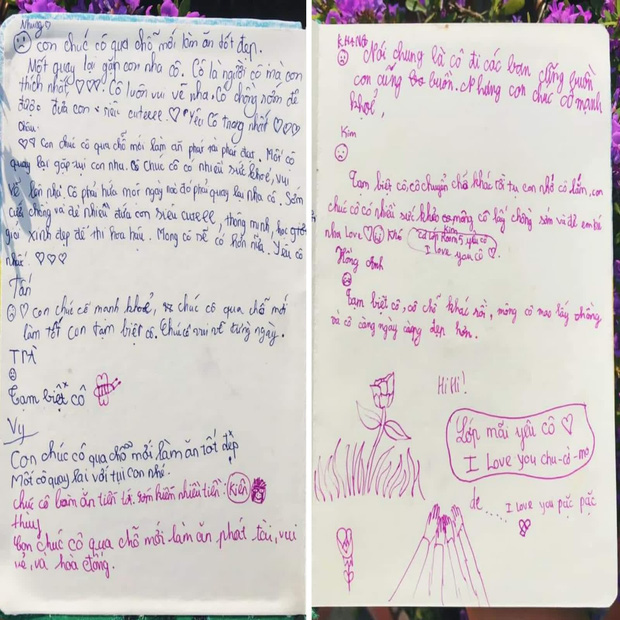 Nhung
con chúc cô qua chỗ mới làm ăn tốt đẹp.
Mốt quay lại gặp con nha cô. Cô là người cô mà con
thích nhất, ♡♡♡. Cô luôn vui vẻ nha. Có chồng sớm đẻ
được đứa con siêu cuteee. ♡ "Yêu Cô trang nhất" ♡♡♡
♡♡ Con chúc cô qua chỗ mới làm ăn phát tài phát đạt. Mốt cô
quay lại gặp tụi con nha. Chúc cô có nhiều sức khoẻ, vui
vẻ lên nhá. Cô phải hứa một ngày nào đó phải quay lại nha cô. Sớm
cưới chồng và đẻ nhiều đứa con siêu cuteee, thông minh, học giỏi
xinh đẹp để thi hoa hậu. Mong cô sẽ có hôn nữa. Yêu cô
nhất ♡♡♡
Tấn
♡ con chúc cô mạnh khoẻ, chúc cô qua chỗ mới
làm tốt con tạm biệt cô. Chúc cô vui vẻ từng ngày.
TMĐ
Tạm biệt cô
Vy
Con chúc cô qua chỗ mới làm ăn tốt đẹp
Mốt cô quay lại với tụi con nhé.
chúc cô làm ăn tiến tới. sớm kiếm nhiều tiền. Kiên
Thuy
Con chúc cô qua chỗ mới làm ăn phát tài, vui
vẻ, và hoà đồng.
Nói chung là cô đi các bạn cũng buồn
con cũng buồn. Nhưng con chúc cô mạnh
khoẻ,
Kim
Tạm biệt cô, cô chuyển chỗ khác rồi tụi con nhớ cô lắm, con
chúc cô có nhiều sức khoẻ, mong cô lấy chồng sớm và đẻ em bé
nha Love ♡ Kim yêu cô
I love you cô ♡
Hồng Anh
Tạm biệt cô, cô chỗ khác rồi, mong cô mau lấy chồng
và cô càng ngày càng đẹp hơn.
Hi Hi!
Lớp mãi yêu cô ♡
I Love you chu-cà-mo
de...... I love you pặc pặc